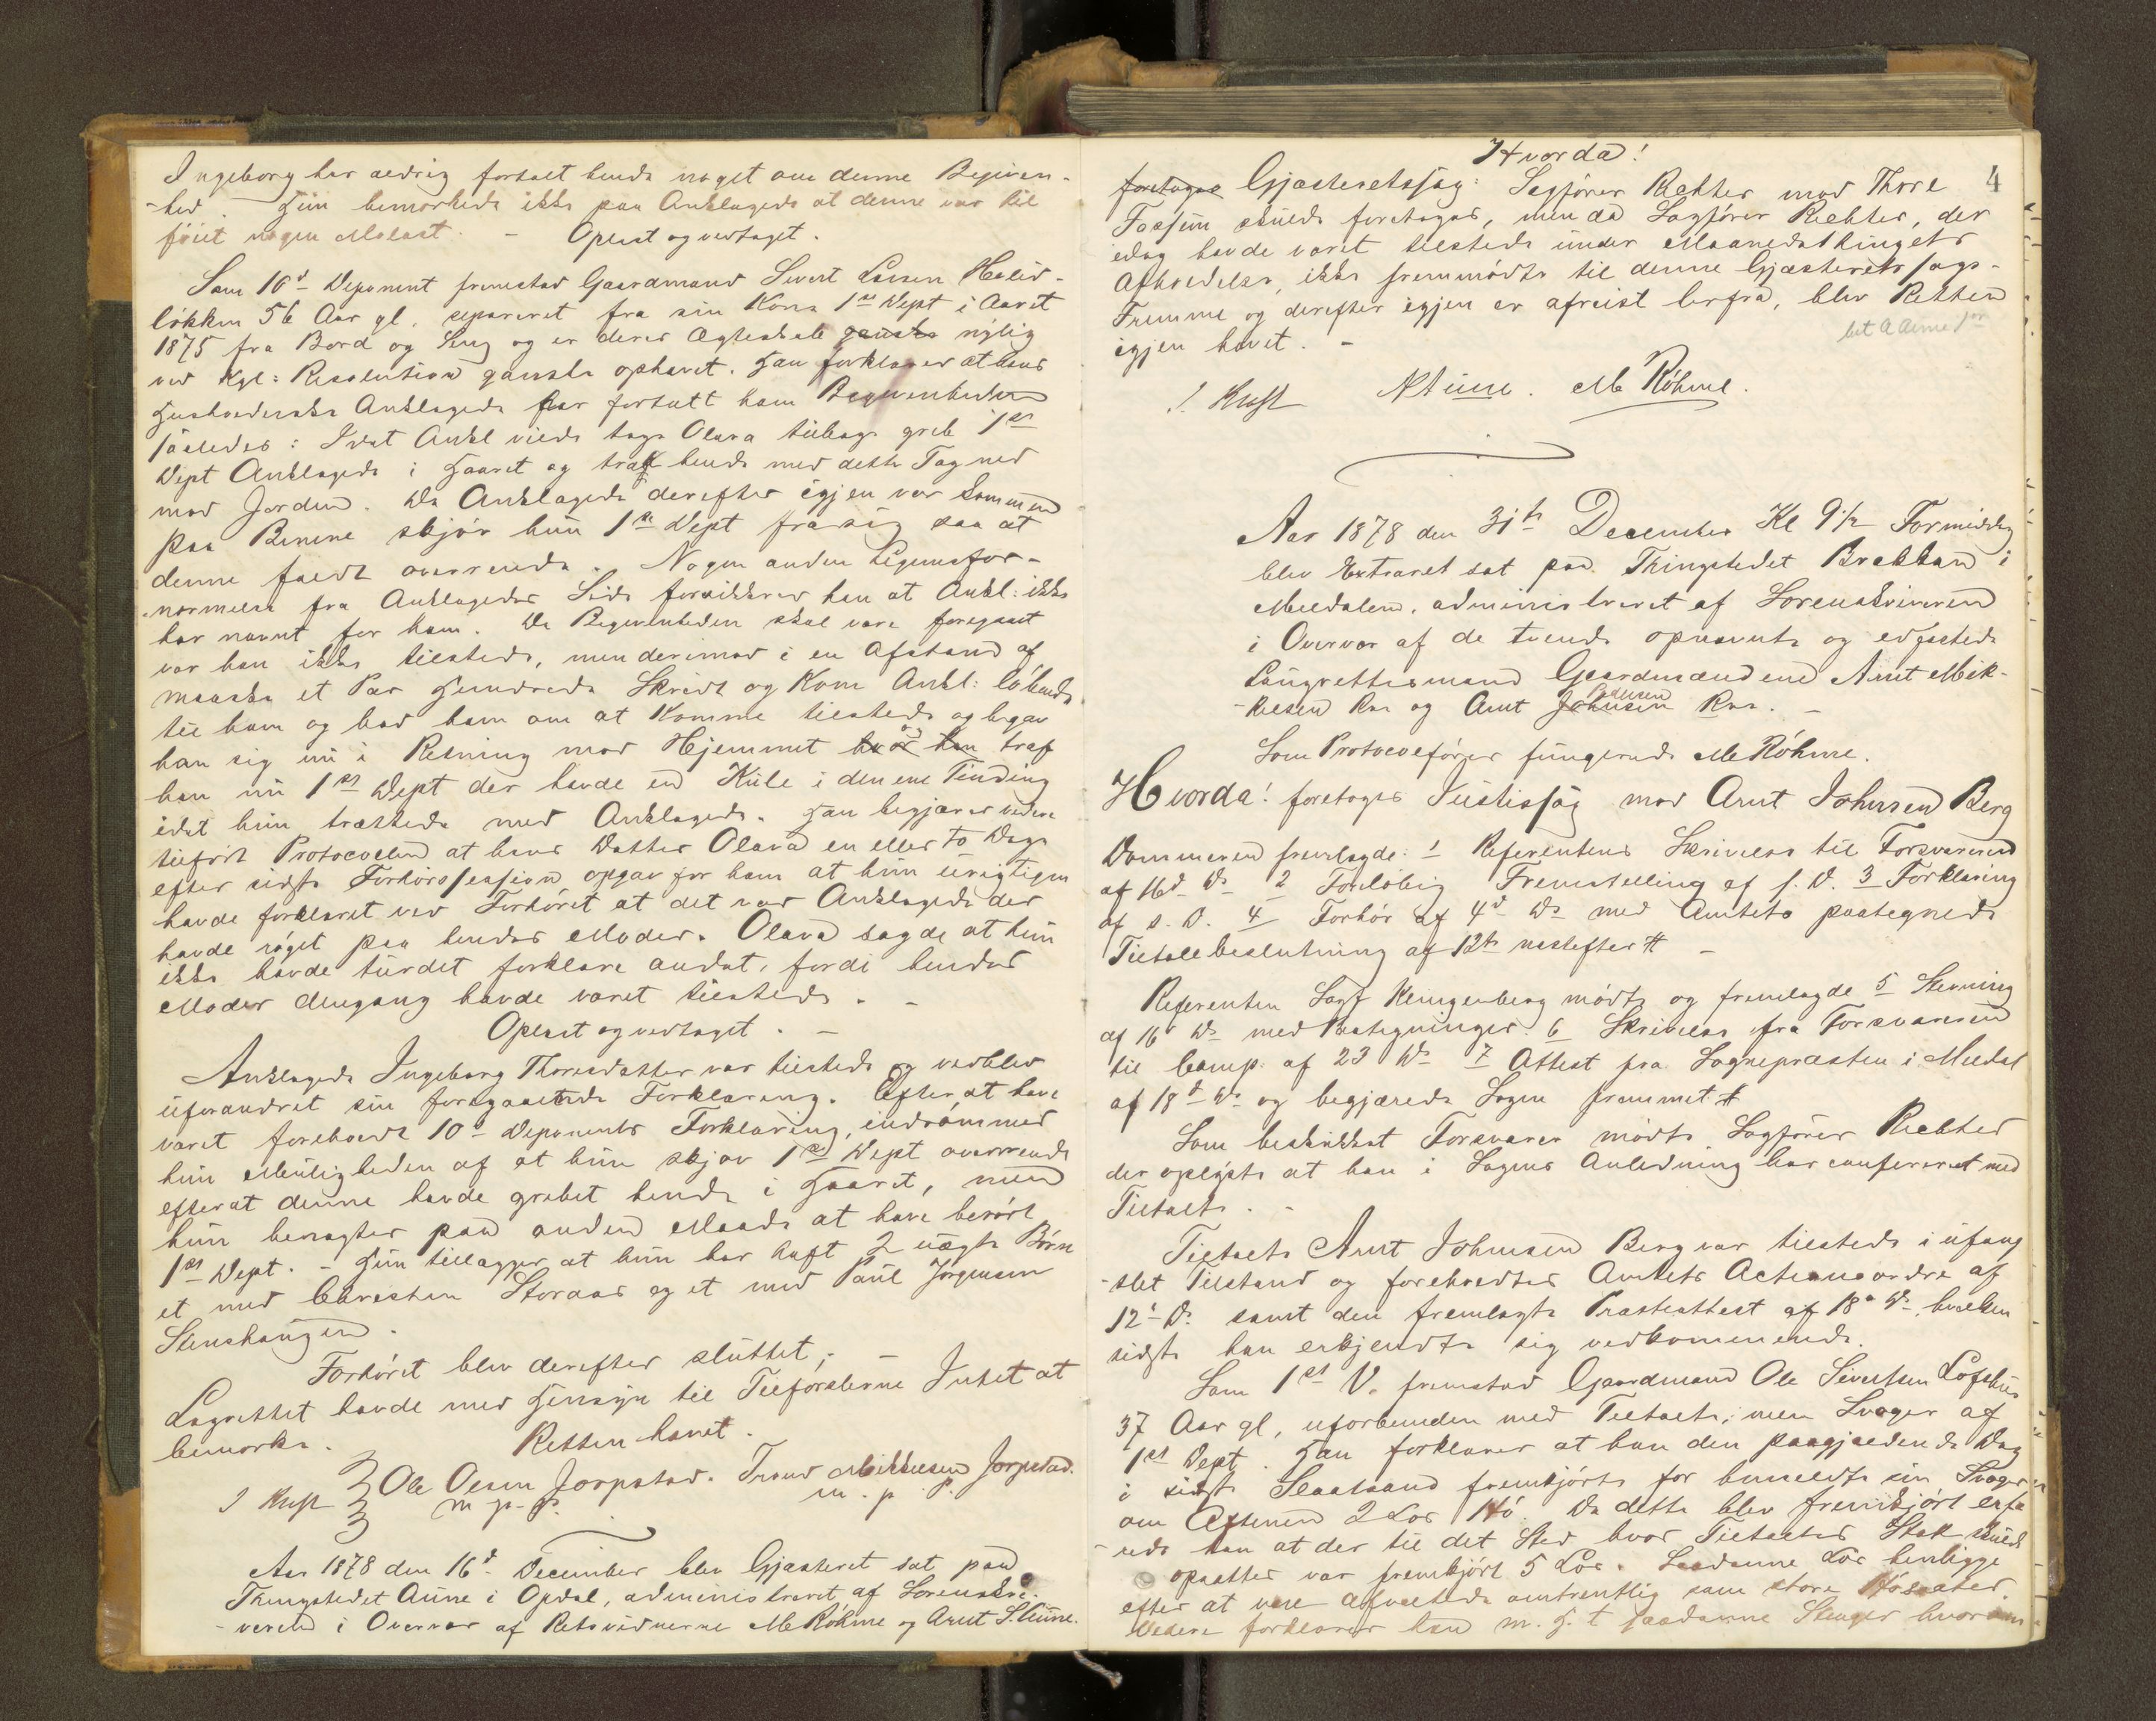 Ingeborg har aldrig fortalt hende noget om denne Begiven-
-hed. Hun bemærkede ikke paa Anklagede at denne var til
føiet nogen Molest. - Oplæst og vedtaget.
Som 10d Deponent fremstod Gaardmand Sivert Larsen
løkken 56 Aar gl. separeret fra sin Kone 1ste Dept i Aaret
1875 fra Bord og Seng og er deres Ægteskab ganske nylig
ved Kgl: Resolution ganske ophævet. Han forklarer at hans
Huusholderske Anklagede har fortalt ham Begivenheden
saaledes: Idet Ankl vilde tage Olava tilbage greb 1ste
Dept Anklagede i Haaret og trak hende med dette Tag ned
mod Jorden. Da Anklagede derefter igjen var kommen
paa Benene skjøv hun 1ste Dept fra sig saa at
denne faldt overende. Nogen anden Legemsfor-
-nærmelse fra Anklagedes Side forsikkrer han at Ankl: ikke
har nævnt for ham. Da Begivenheden skal være foregaaet
var han ikke tilstede, men derimod i en Afstand af
maaske et Par Hundrede Skridt og kom Ankl: løbende
til ham og bad ham om at komme tilstede og begav
han sig nu i Retning mod Hjemmet hvor han traf
han nu 1ste Dept der havde en Kule i den ene Tinding
idet hun trættede med Anklagede. Han begjærer videre
tilført Protocollen at hans Datter Olava en eller to Dage
efter sidste Forhørssession opgav for ham at hun urigtigen
havde forklaret ved Forhøret at det var Anklagede der
havde røget paa hendes Moder. Olava sagde at hun
ikke havde turdet forklare andet, fordi hendes
Moder dengang havde været tilstede. -
Oplæst og vedtaget. -
Anklagede Ingeborg Thoresdatter var tilstede og vedblev
uforandret sin foregaaende Forklaring. Efter at have
været foreholdt 10de Deponents Forklaring, indrømmed
hun Muligheden af at hun skjøv 1ste Dept overende
efterat denne havde grebet hende i Haaret, men
hun benægter paa anden Maade at have berørt
1ste Dept. - Hun tillægger at hun har havt 2 uægte Børn
et med Christen Storaas og et med Paul Jørgensen
Stenshaugen.
Forhøret blev derefter sluttet; -
Lagrettet havde med Hensyn til Tilførslerne Intet at
bemærke. Retten hævet.
I Kraft Ole Olsen Jorpstad. Trond Mikkelsen Jorpstad.
m. p. P. m. p. P.
Aar 1878 den 16d December blev Gjæsteret sat paa
Thingstedet Aune i Opdal, administreret af Sorenskri-
-veren i Overvær af Retsvidnerne M Røhme og Arnt S. Aune.
4
Hvorda!
foretages Gjæsteretssag: Sagfører Richter mod Thore
Fossum skulde foretages, men da Sagfører Richter, der
idag havde været tilstede under Maanedsthingets
Afholdelse, ikke fremmødte til denne Gjæsteretssags-
Fremme og derefter igjen er afreist herfra, blev Retten
igjen hævet. -
I. Kraft Aune. M Røhme.
Aar 1878 den 31te December Kl 9 1/2 Formiddag
blev Extraret sat paa Thingstedet Brattan i
Meldalen, administreret af Sorenskriveren
i Overvær af de tvende opnævnte og edfæstede
Laugrettesmænd Gaardmændene Arnt Mik-
-kelsen Ree og Arnt Johnsen Pedersen Ree. -
Som Protocolfører fungerede M Røhme.
Hvorda! foretoges Justissag mod Arnt Johnsen Berg
Dommeren fremlagde: 1 Referentens Skrivelse til Forsvareren
af 16d Ds 2 Foreløbig Fremstilling af s. D. 3 Forklaring
af s. D. 4 Forhør af 4d Ds med Amtets paategnede
Tiltalebeslutning af 12te næstefter # -
Referenten Sagf Klingenberg mødte og fremlagde 5 Stevning
af 16d Ds med Paategninger. 6 Skrivelse fra Forsvareren
til Comp. af 23 Ds 7 Attest fra Sognepræsten i Meldal
af 18d Ds og begjærede Sagen fremmet #
Som beskikket Forsvarer mødte Sagfører Richter
der oplyste at han i Sagens Anledning har confereret med
Tiltalte. -
Tiltalte Arnt Johnsen Berg var tilstede i ufæng
-slet Tilstand og foreholdtes Amtets Actionsordre af
12te Ds samt den fremlagte Præsteattest af 18de Ds, hvilken
sidste han erkjendte sig vedkommende.
Som 1ste V. fremstod Gaardmand Ole Sivertsen Lofshus
37 Aar gl, uforbunden med Tiltalte; men Svoger af
1ste Dept. Han forklarer at han den paagjældende Dag
i sidste Slaataand fremkjørte for bemeldte sin Svoger
om Aftenen 2 Læs Hø. Da dette blev fremkjørt erfa
-rede han at der til det Sted hvor Tiltaltes Stak skulde
opsættes var fremkjørt 5 Læs. Saadanne Læs henligge
efter at være afvæltede omtrentlig som store Høsaater.
Videre forklarer han m. H. t saadanne Stænger hvorom